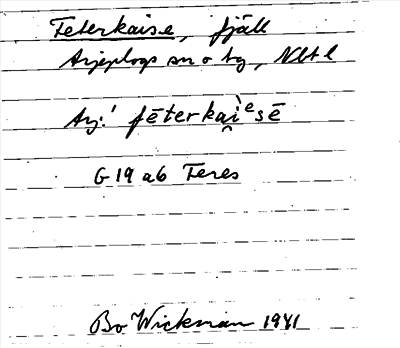 Feterkaise, fjäll
Arjeplogs sn o tg, Nbt l
Arj.! fēterkai̯ᵉsē
G 19 a6 Feres
Bo Wickman 1941